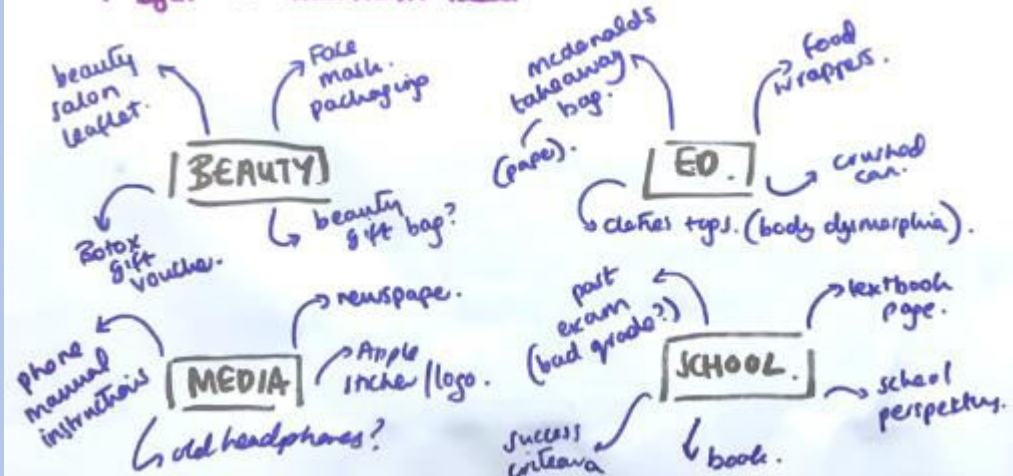 beauty
salon
leaflet.
Face
mask.
packaging
BEAUTY
Botox
gift
voucher.
beauty
gift bag?
mcdonalds
takeaway
bag.
(paper).
food
wrappers.
ED.
crushed
can.
clothes tags. (body dysmorphia).
phone
manual
instructions
newspape.
MEDIA
Apple
sticker/logo.
old headphones?
past
exam
(bad grade?)
textbook
page.
SCHOOL.
school
success
book.